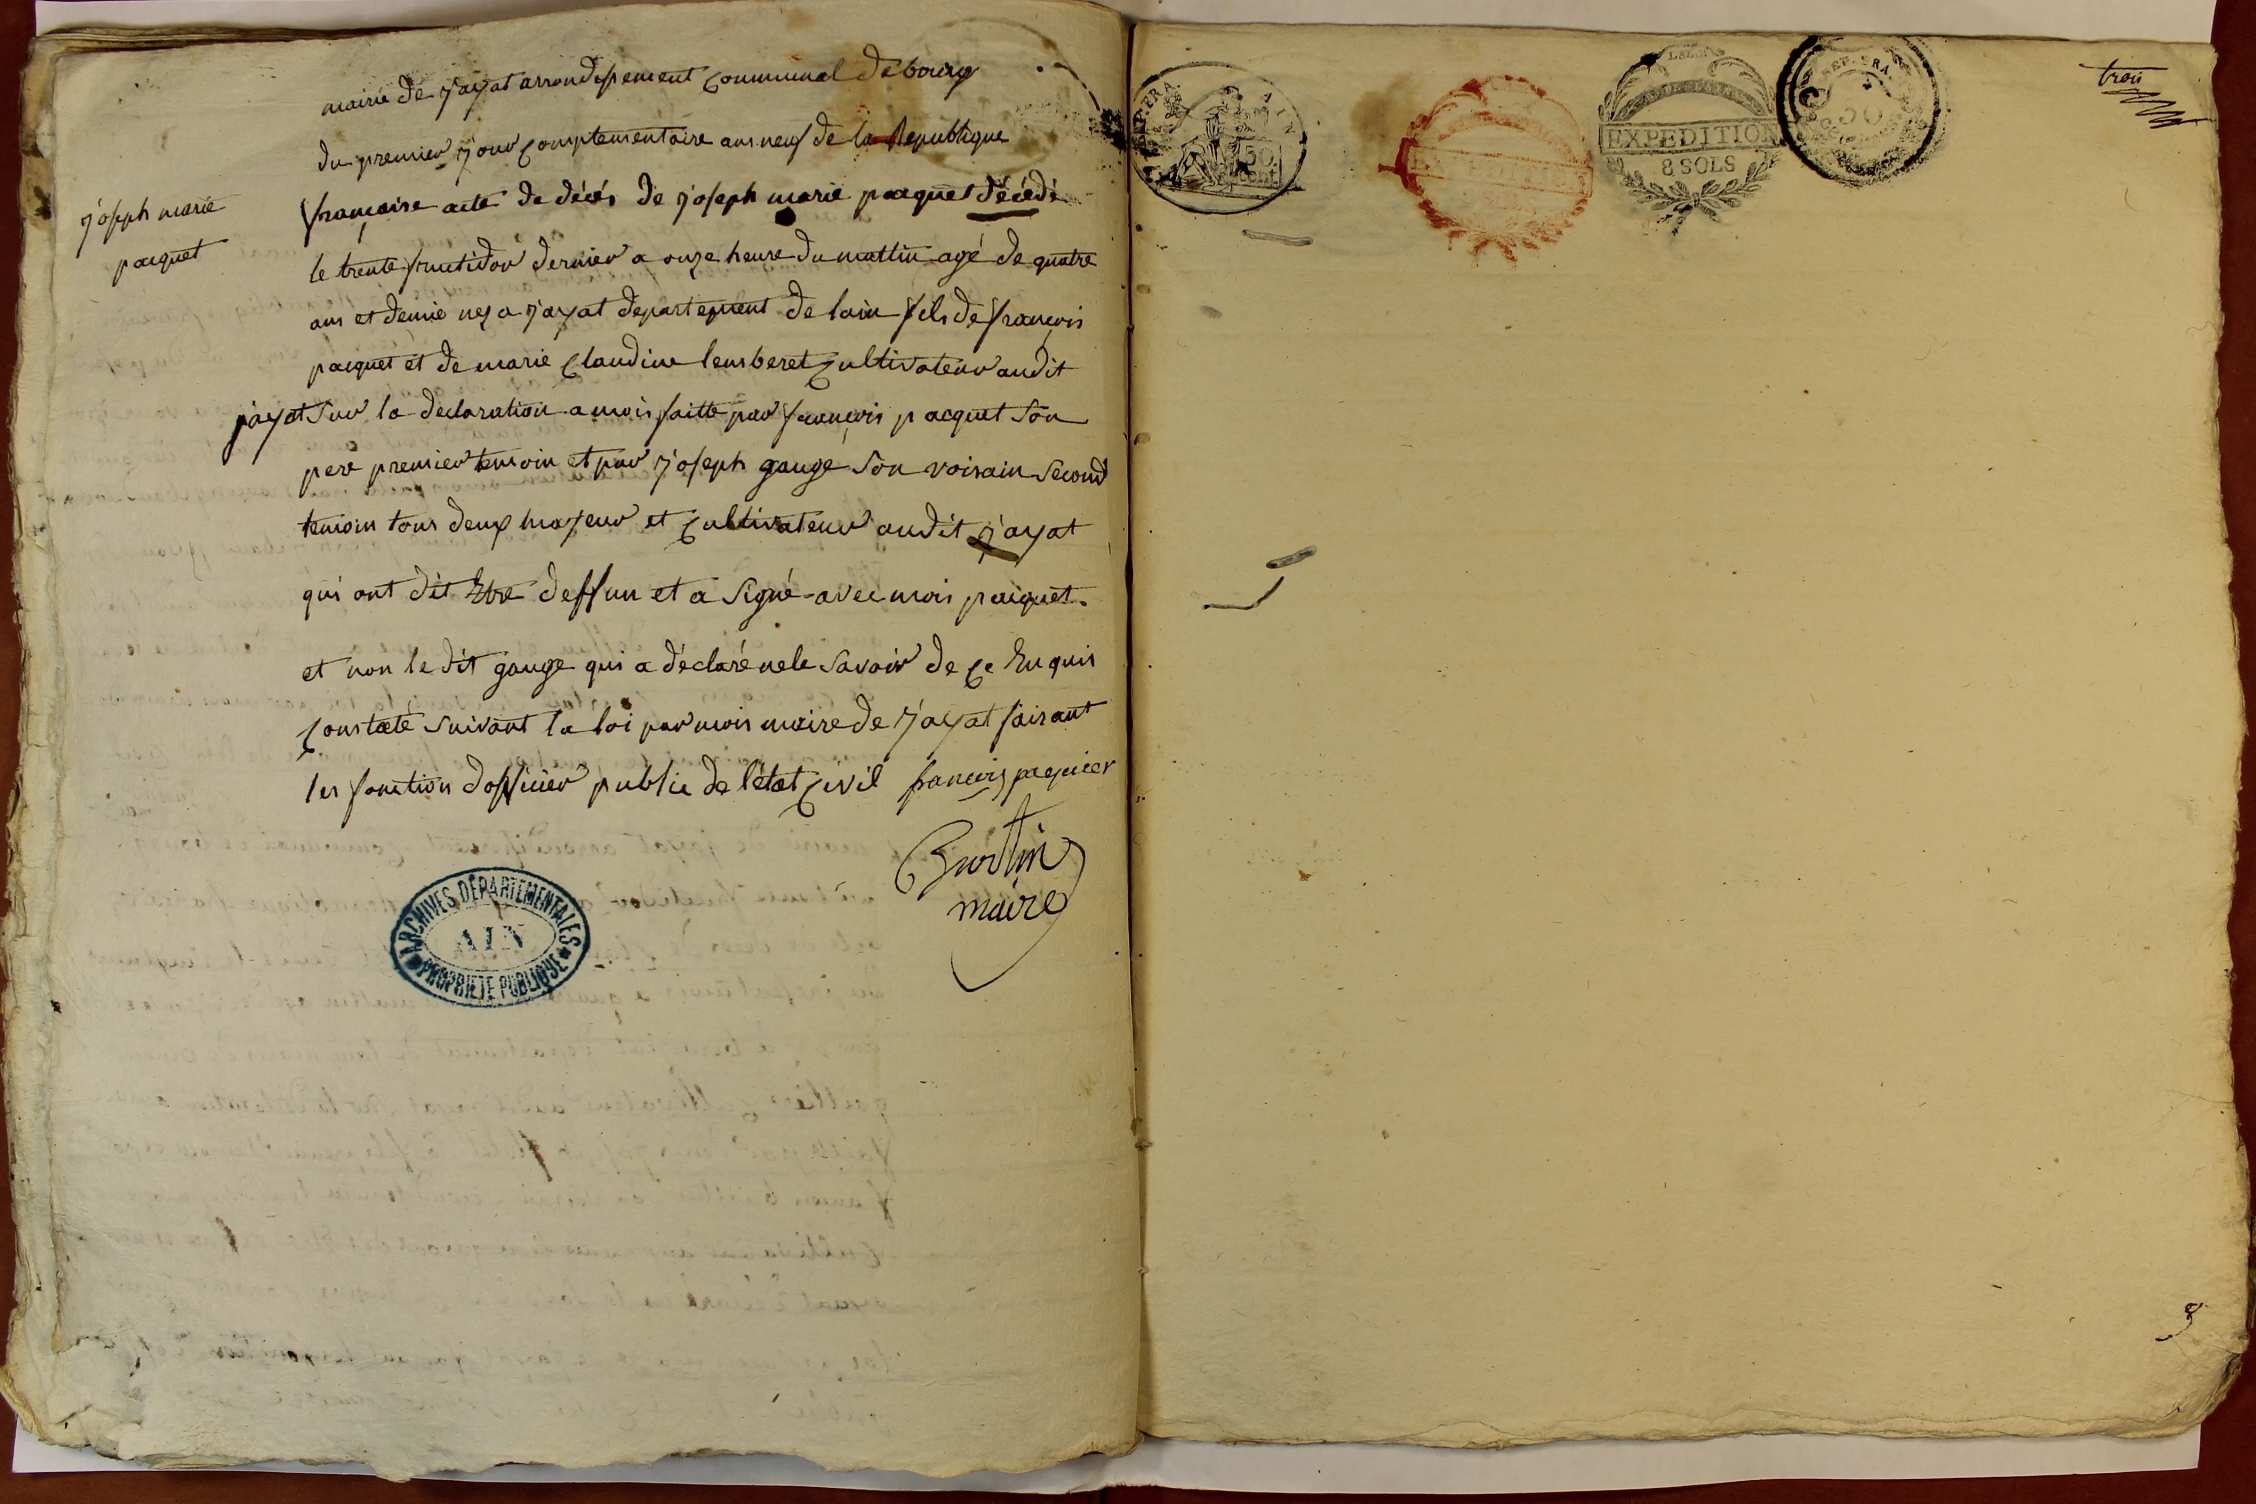 mairie de j'ayat arrondissement communal de bourg
du premier j'our complementaire ans neuf de la Republique
j'oseph marie
pacquet
françaire acte de décés de j'oseph marie pacquet décédé
le trente fructidor dernier a onze heure du mattin agé de quatre
ans et demie nez a j'ayat departement de lain fils de françois
pacquet et de marie claudine cultivateur audit
jayat sur la declaration a mois faitte par françois pacquet son
pere premier temoin et par j'oseph gauge son voisain second
temoin tous deux majeur et cultivateur audit j'ayat
qui ont dit Etre deffun et a signé avec mois pacquet.
et non le dit gauge qui a déclaré nele savoir de ce Enquis
constaté suivant la loi par mois maire de j'ayat faisant
les fonction dofficier public de l'état civil francois paquier
Burtin
maire
ARCHIVES DÉPARTEMENTALES
AIN
PROPRIETE PUBLIQUE
REP. FRA.
AIN
50
cent.
EXPEDITION
8 SOLS
REP. FRA.
50
trois